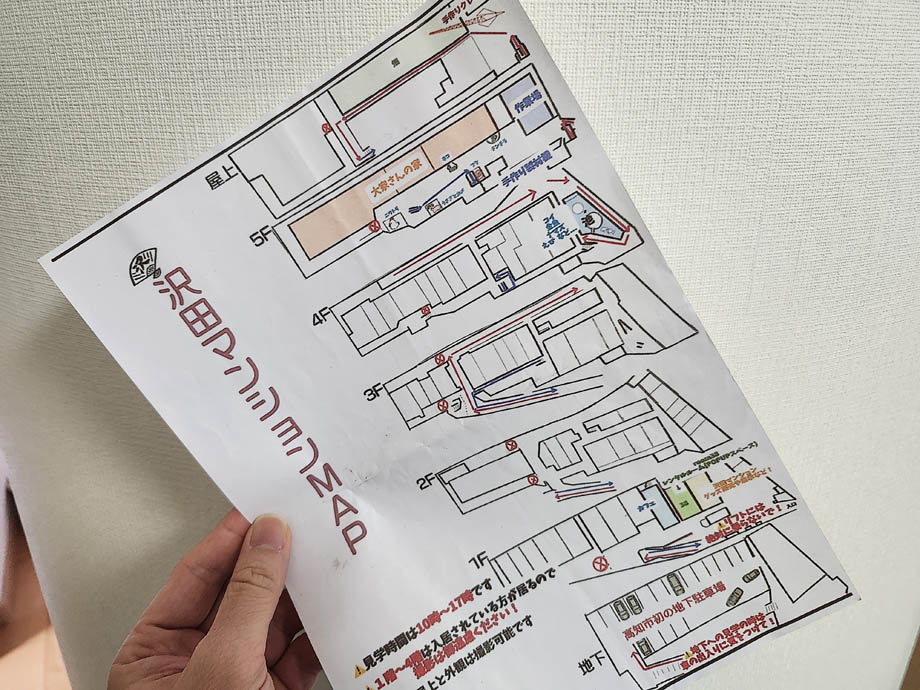 沢田マンションMAP
手作りクレ
畑
屋上
作業場
大家さんの家
手作り製材機
5F
池
4F
3F
2F
レンタルルーム(POPUPスペース)
カフェ
リフトには
絶対に乗らないで！
1F
入口
高知市初の地下駐車場
地下への見学の時は
車の出入りに気をつけて！
地下
見学時間は10時〜17時です
1階〜4階は入居されている方が居るので
撮影はご遠慮ください！
上と外観は撮影可能です